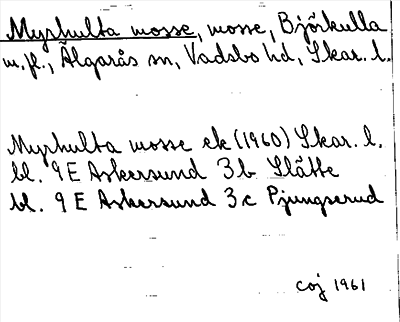 Myrhulta mosse, mosse, Björkulla
m.fl., Älgarås sn, Vadsbo hd, Skar. l.
Myrhulta mosse ek (1960) Skar. l.
bl. 9E Askersund 3b Slätte
bl. 9E Askersund 3c Pjungserud
coj 1961